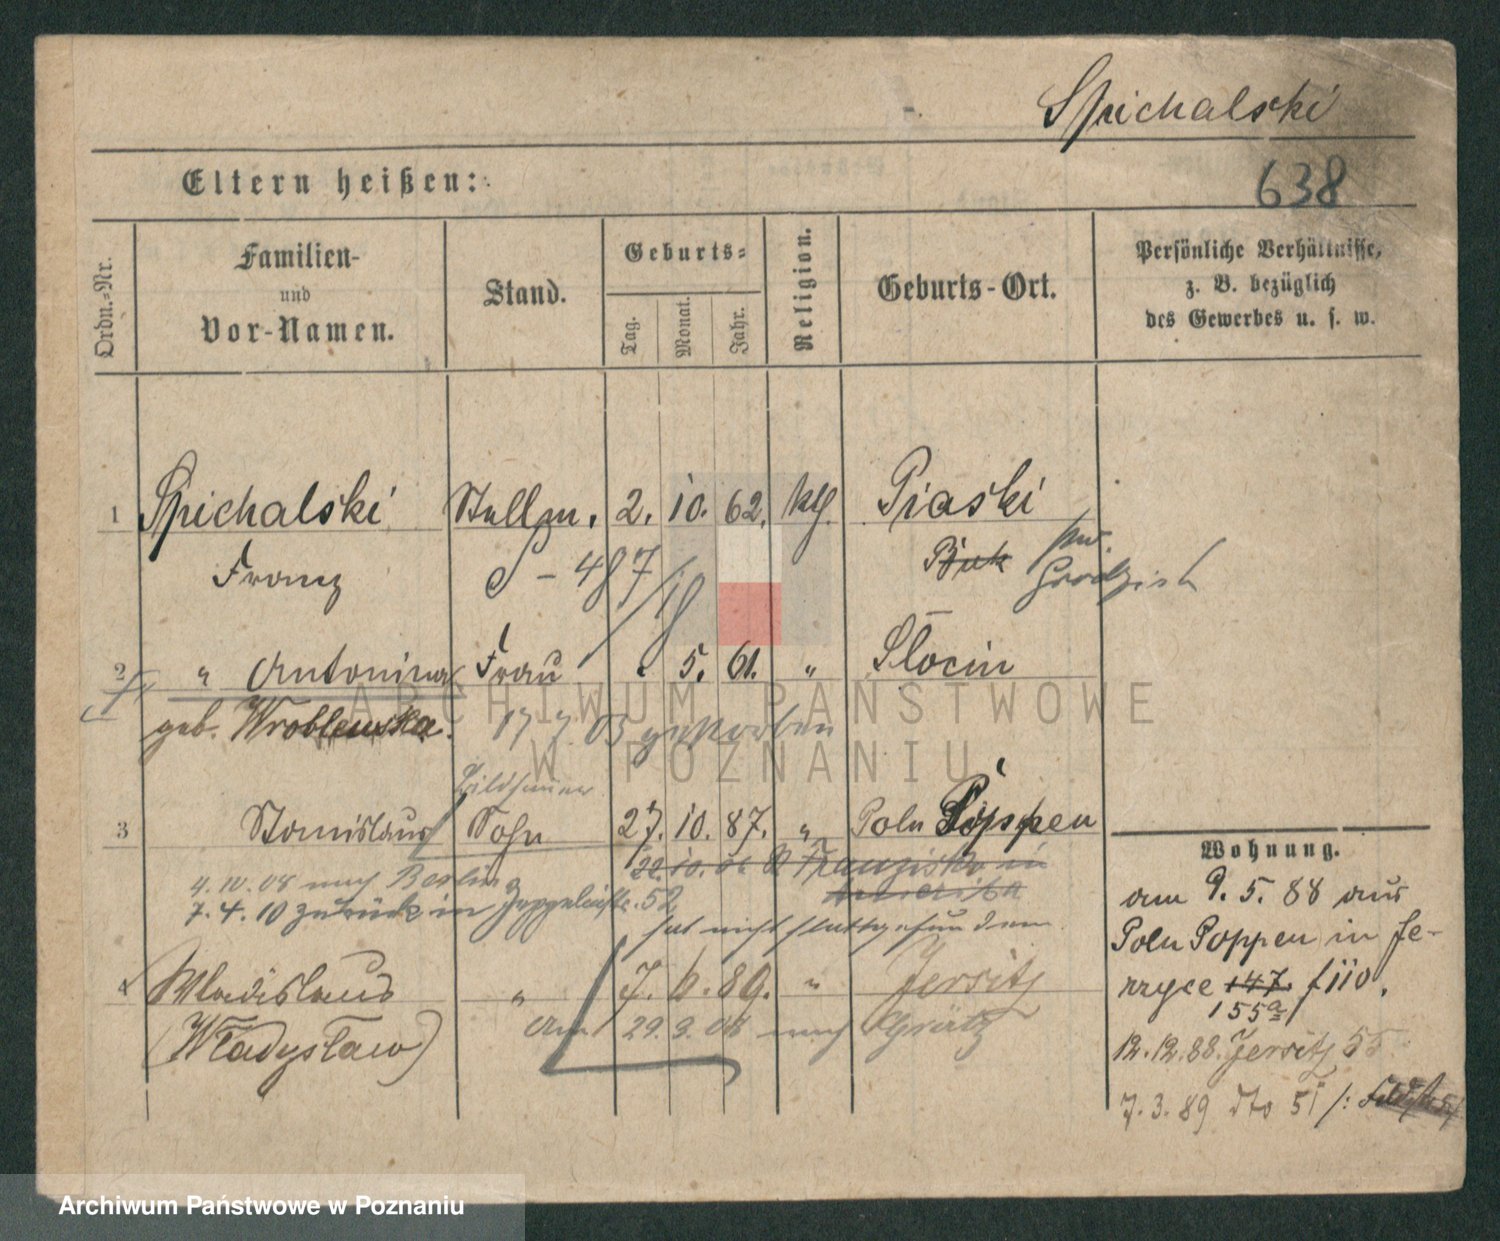 Spichalski
Eltern heißen:
638
Ordn.-Nr.
Familien-
und
Vor-Namen.
Stand.
Geburts-
Tag.
Monat.
Jahr.
Religion.
Geburts-Ort.
Persönliche Verhältnisse,
z. B. bezüglich
des Gewerbes u. s. w.
1 Spichalski Stellm. 2. 10. 62. kth. Piaski
Franz S - 487/18 Buk Grodzisk
2 " Antonina Frau . 5. 61. " Słocin
geb. Wroblewska. 17 7 03 gestorben
Bildhauer
3 Stanislaus Sohn 27. 10. 87. " Poln Poppen
22.10.06 Franziska in
4.10.08 nach Berlin
7.4.10 zurück in Zeppelinstr. 52
hat nicht stattgefunden
4 Wladislaus " 7. 6. 89. " Jersitz
(Władysław) Am 29.9.08 nach Grätz
Wohnung.
am 9. 5. 88 aus
Poln Poppen in Je-
rzyce 147.
155a
12.12.88. Jersitz 55
7.3.89 dto 51
ARCHIWUM PAŃSTWOWE
W POZNANIU
Archiwum Państwowe w Poznaniu